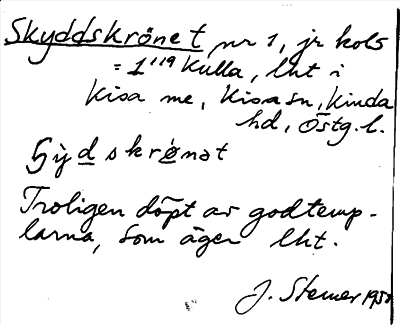 Skyddskrönet nr 1, jr kols
= 1"19 Kulla, lht i
Kisa me, Kisa sn, Kinda
hd, Östg. l.
ʃyd skrønət
Troligen döpt av godtemp-
larna, som äger lht.
J. Stemer 195